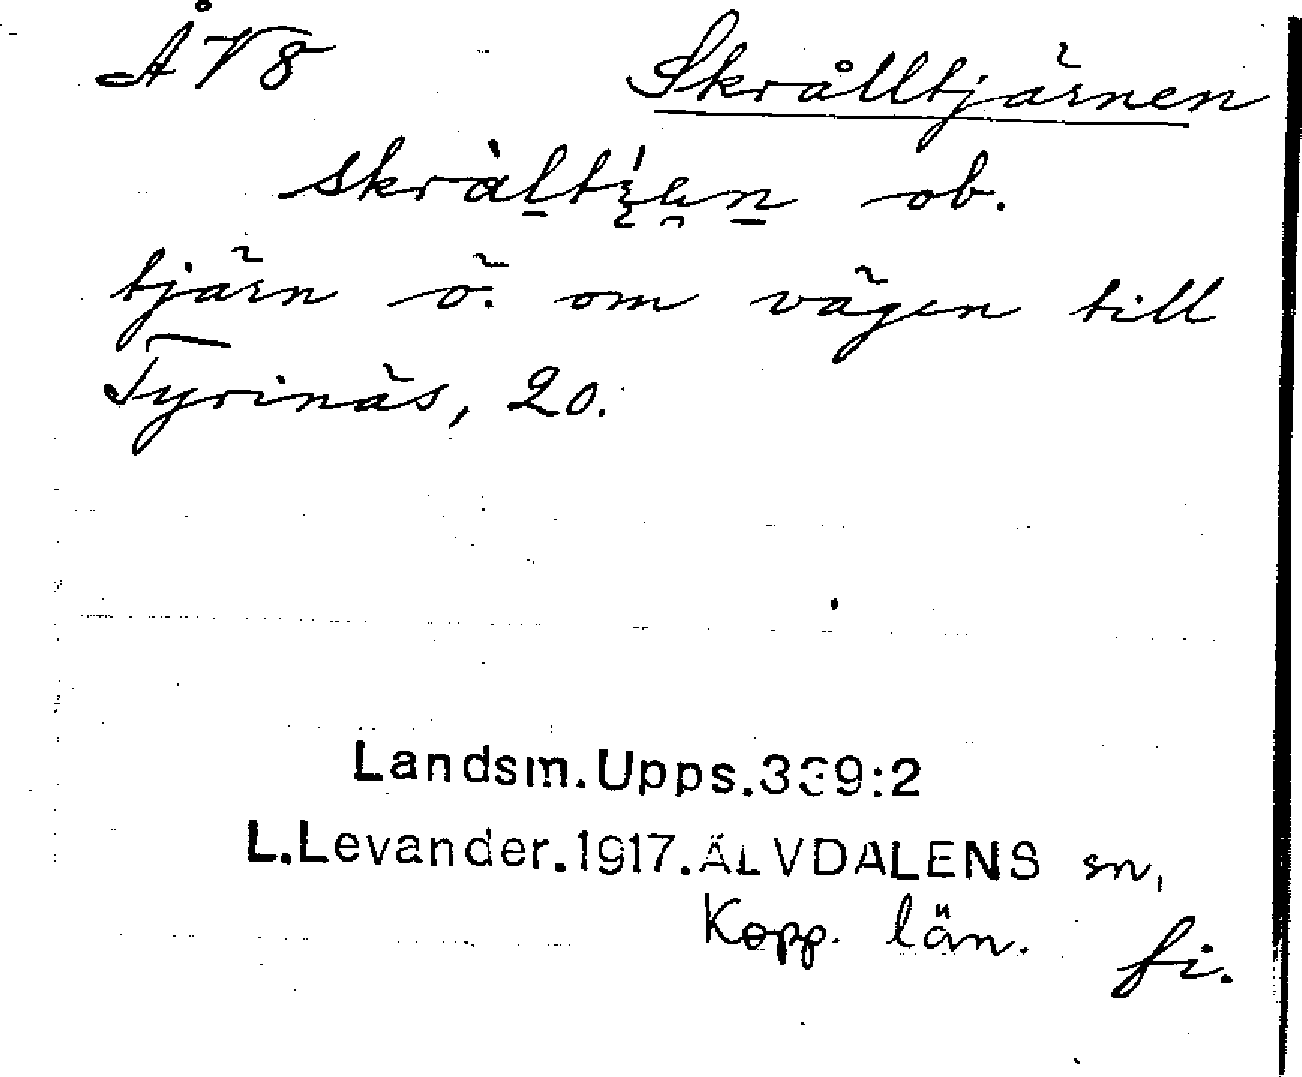 ÅV8 Skrålltjärnen
ob.
tjärn ö. om vägen till
Tyrinäs, 20.
Landsm.Upps.339:2
L.Levander.1917.ÄLVDALENS sn,
Kopp. län. fi.